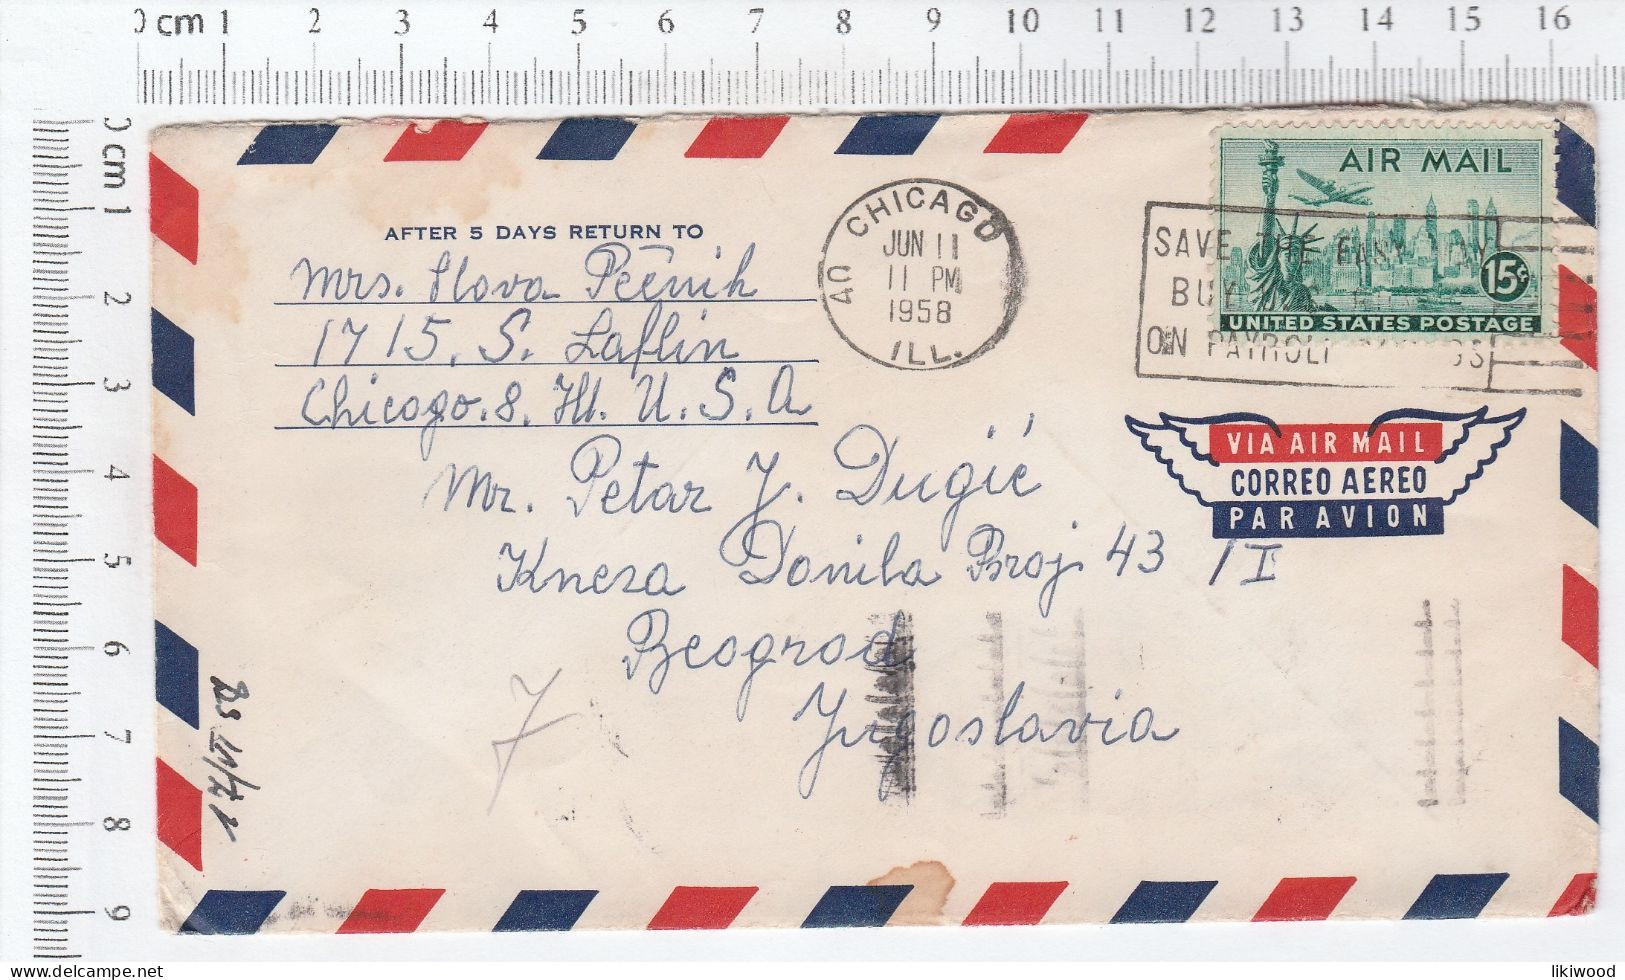 0 cm 1 2 3 4 5 6 7 8 9 10 11 12 13 14 15 16
0 cm 1 2 3 4 5 6 7 8 9
AFTER 5 DAYS RETURN TO
Mrs. Slova Pečnik
1715. S. Laflin
Chicago. 8. Ill. U. S. A
CHICAGO
JUN 11
11 PM
1958
ILL.
AIR MAIL
15¢
UNITED STATES POSTAGE
SAVE THE EASY WAY
BUY
ON PAYROLL
VIA AIR MAIL
CORREO AEREO
PAR AVION
Mr. Petar J. Dugić
Kneza Donila Broj 43 / I
Beograd
Jugoslavia
7
17/VI 58
likiwood